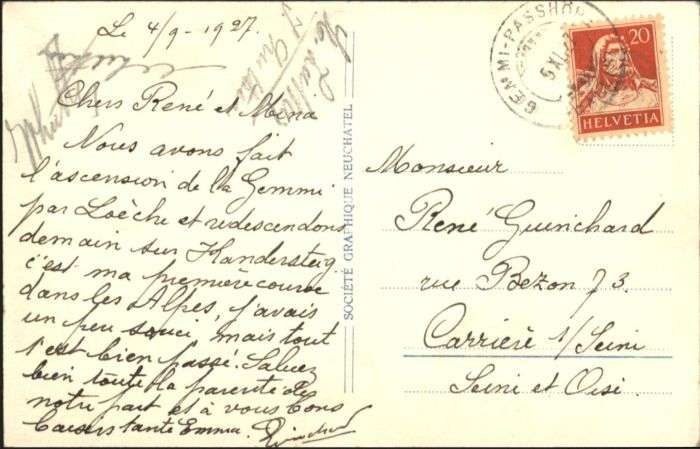 Le 4/9-1927.
Chers René et Mina
Nous avons fait
l'ascension de la Gemmi
par Loèche et redescendons
demain sur Kandersteg
c'est ma première course
dans les Alpes, j'avais
un peu souci, mais tout
s'est bien passé. Saluez
bien toute la parenté de
notre part et à vous bons
baisers tante Emma.
SOCIÉTÉ GRAPHIQUE NEUCHATEL
GEMMI-PASSHÖHE
20
HELVETIA
Monsieur
René Guinchard
rue Bezon 73.
Carrière s/Seine
Seine et Oise